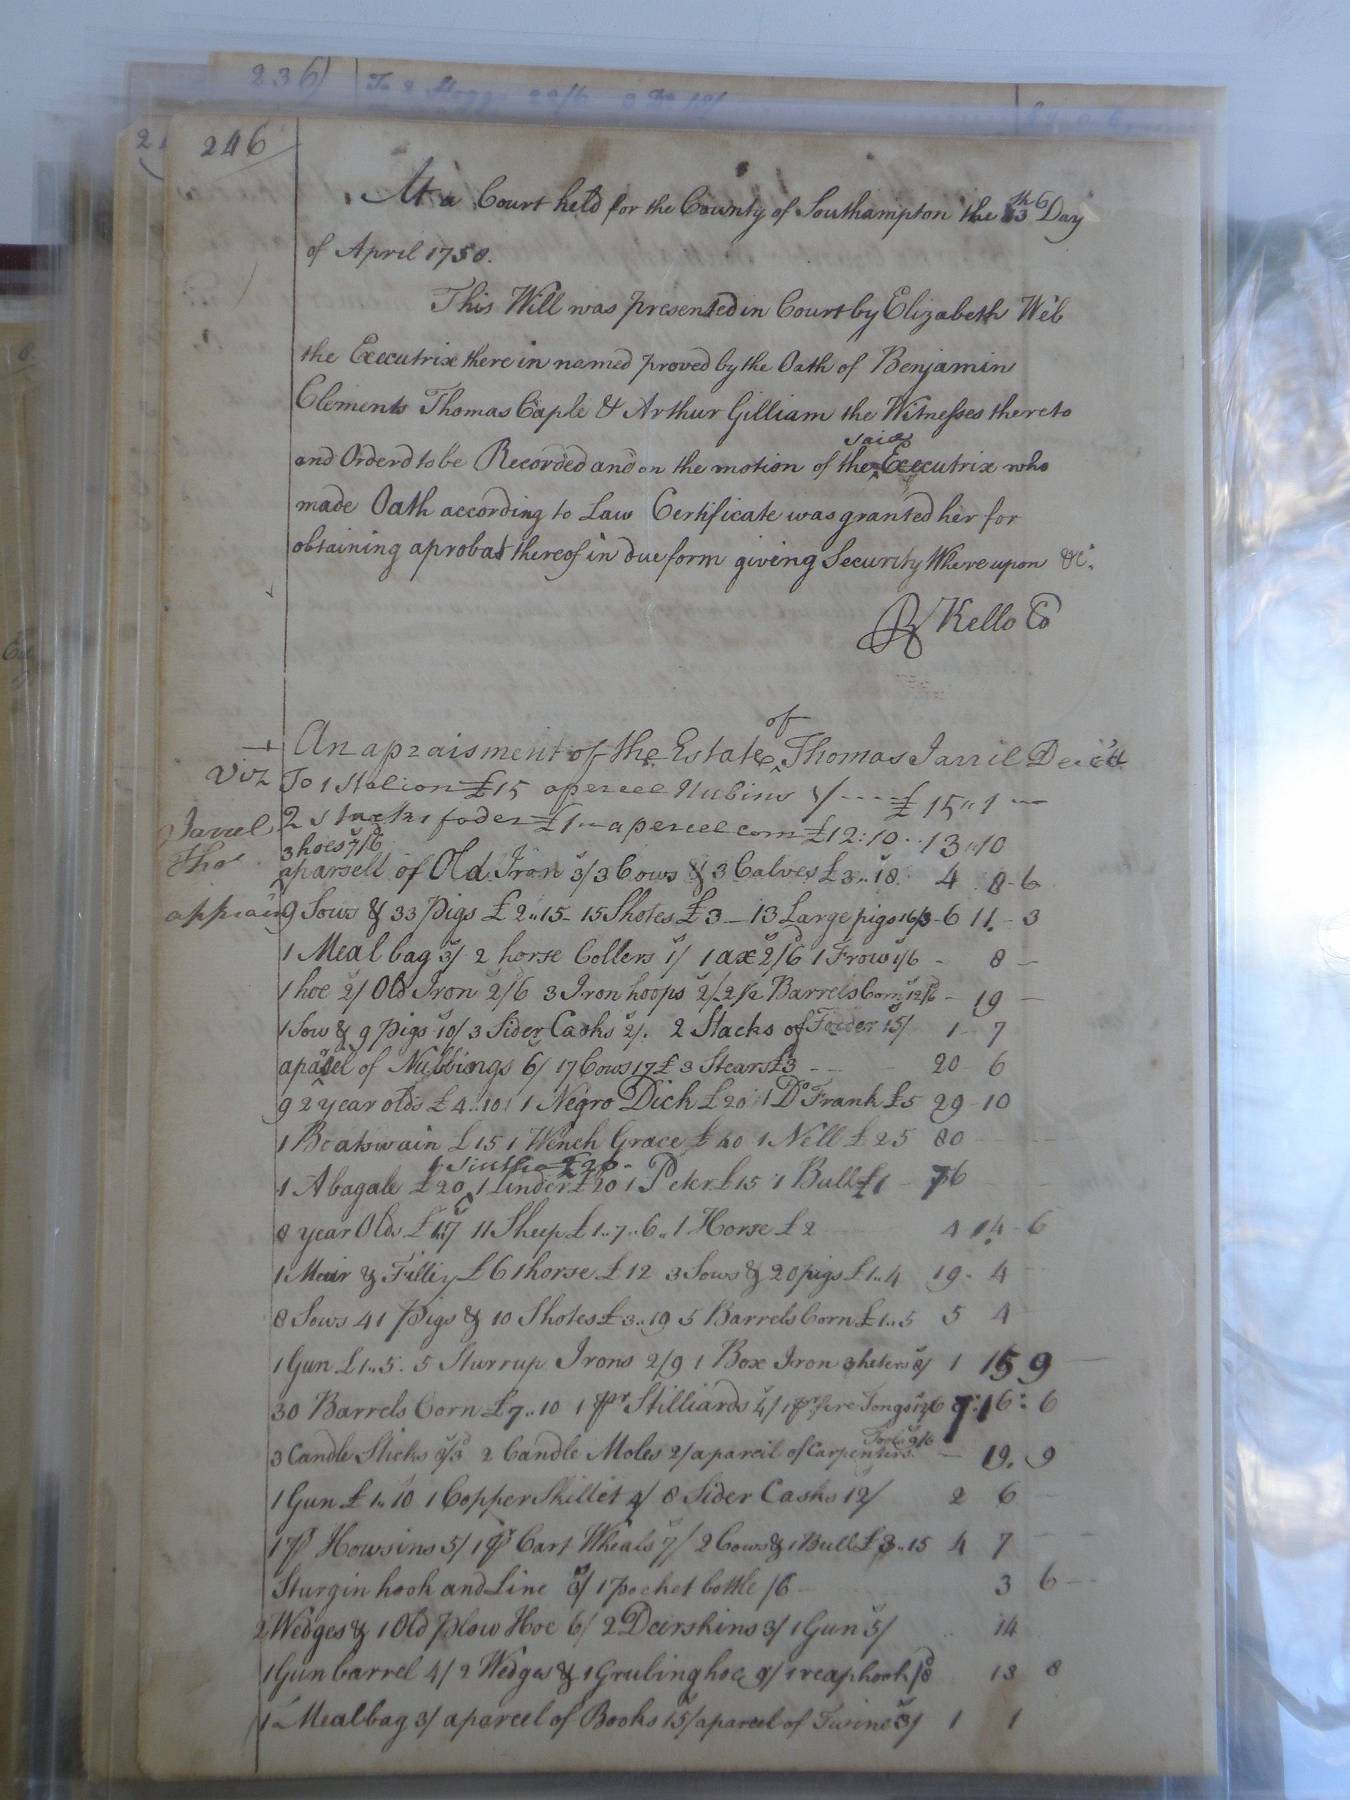 236
246
At a Court held for the County of Southampton the 13th Day
of April 1758.
This Will was presented in Court by Elizabeth Web
the Executrix there in named proved by the Oath of Benjamin
Clements Thomas Caple & Arthur Gilliam the Witnesses thereto
and Orderd to be Recorded and on the motion of the said Executrix who
made Oath according to Law Certificate was granted her for
obtaining a probat thereof in due form giving Security Where upon &c.
R Kello C
An apraisment of the Estate of Thomas Jarril Dec'd
Viz To 1 Stalion £15 a percel Nubins 1/ ---- £ 15 " 1 —
Jarrel 2 stacks foder £1 — a percel corn £12:10 .. 13 " 10
Tho
3 hoes 7/6
a parsell of Old Iron 3/ 3 Cows & 3 Calves £3..18. 4 . 8 - 6
appraism 9 Sows & 33 Pigs £2..15 - 15 Shotes £3 — 13 Large pigs 16/3 - 6 11 - 3
1 Meal bag 3/ 2 horse Collers 1/ 1 ax 2/6 1 Frow 1/6 - 8 —
1 hoe 2/ Old Iron 2/6 3 Iron hoops 2/ 2 1/2 Barrels Corn 12/6 - 19 —
1 Sow & 9 Pigs 10/ 3 Sider Casks 2/. 2 Stacks of Fodder 15/ 1 - 7
a parsel of Nubbings 6/ 17 Cows 17£ 3 Stears £3 -- - 20 - 6
9 2 year olds £4..10 1 Negro Dick £20 1 Do Frank £5 29 - 10
1 Boatswain £15 1 Wench Grace £40 1 Nell £25 80 - --
1 £20 -
1 Abagale £20 1 £20 1 Peter £15 1 Bull £1 - 76 -
8 year Olds £ 11 Sheep £1..7..6.. 1 Horse £2 4 14 - 6
1 Mair & Filley £6 1 horse £12 3 Sows & 20 pigs £1..4 19 - 4 --
8 Sows 41 Pigs & 10 Shotes £3..19 5 Barrels Corn £1..5 5 4 -
1 Gun £1..5. 5 Sturrup Irons 2/9 1 Box Iron 3 heters 8/ 1 15 9 —
30 Barrels Corn £7..10 1 pr Stilliards 4/ 1 pr fire Tongs 2/6 7:16:6
Tools 9/6
3 Candle Sticks 8/3 2 Candle Moles 2/ a parcil of Carpenters — 19. 9
1 Gun £1..10 1 Copper Skillet 4/ 8 Sider Casks 12/ 2 6 -
1 pr Howsins 5/ 1 pr Cart Wheals 7/ 2 Cows & 1 Bull £3..15 4 7 - -
Sturgin hook and Line 3/ 1 Pocket bottle /6 - 3 6 --
2 Wedges & 1 Old Plow Hoe 6/ 2 Deirskins 3/ 1 Gun 5/ .. 14
1 Gun barrel 4/ 2 Wedges & 1 Grubing hoe 9/ 1 reaphook /8 13 8
1 Mealbag 3/ a parcel of Books 15/ a parcel of Twine 3/ 1 1